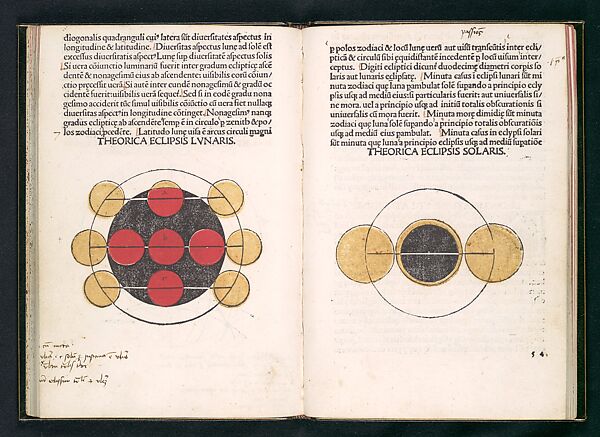 diogonalis quadranguli cui' latera sūt diuersitates aspectus in
longitudine & latitudine. Diuersitas aspectus lunę ad solē est
excessus diuersitatis aspect' Lunę sup diuersitatē aspectus solis
Si uera cōiunctio luminariū fuerit inter gradum eclipticę ascē
dentē & nonagesimū eius ab ascendente: uisibilis eorū cōiun/
ctio pręcessit uerā. Si autē inter eundē nonagesimū & gradū oc
cidentē fuerit: uisibilis uerā sequet'. Sed si in eodē gradu nona
gesimo acciderit tūc simul uisibilis cōiūctio cū uera fiet nullaq;
diuersitas aspect' in longitudine cōtinget. Nonagesim' nanq;
gradus eclipticę ab ascēdēte semp ē in circulo p zenith & po/
los zodiaci pcedēte. Latitudo lunę uisa ē arcus circuli magni
THEORICA ECLIPSIS LVNARIS.
p polos zodiaci & locū lunę uerū aut uisū trāseūtis inter ecli/
pticā & circulū sibi equidistantē incedentē p locū uisum inter/
ceptus. Digiti ecliptici dicunt' duodecimę diametri corpis so
laris aut lunaris eclipsatę. Minuta casus i eclipsi lunari sūt mi
nuta zodiaci quę luna pambulat solē supando a principio ecly
psis usq; ad mediū eius: si particularis fuerit: aut uniuersalis si/
ne mora. uel a principio usq; ad initiū totalis obscurationis si
uniuersalis cū mora fuerit. Minuta morę dimidię sūt minuta
zodiaci quę luna solē supando a principio totalis obscuratiōis
usq; ad mediū eius pambulat. Minuta casus in eclypsi solari
sūt minuta quę luna a principio eclipsis usq; ad mediū supatiōe
THEORICA ECLIPSIS SOLARIS.
54